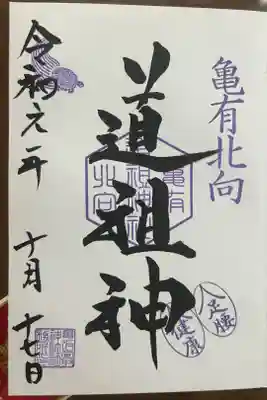 亀有北向
道祖神
亀有
祖神
北向
足腰
健康
令和元年
十月十七日